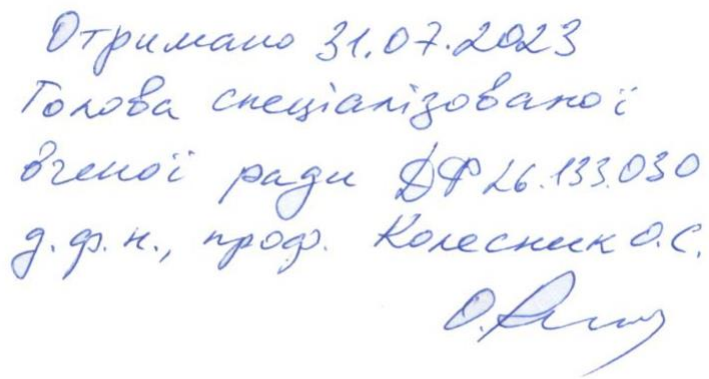 Отримано 31.07.2023
Голова спеціалізованої
вченої ради ДФ 26.133.030
д.ф.н., проф. Колесник О.С.